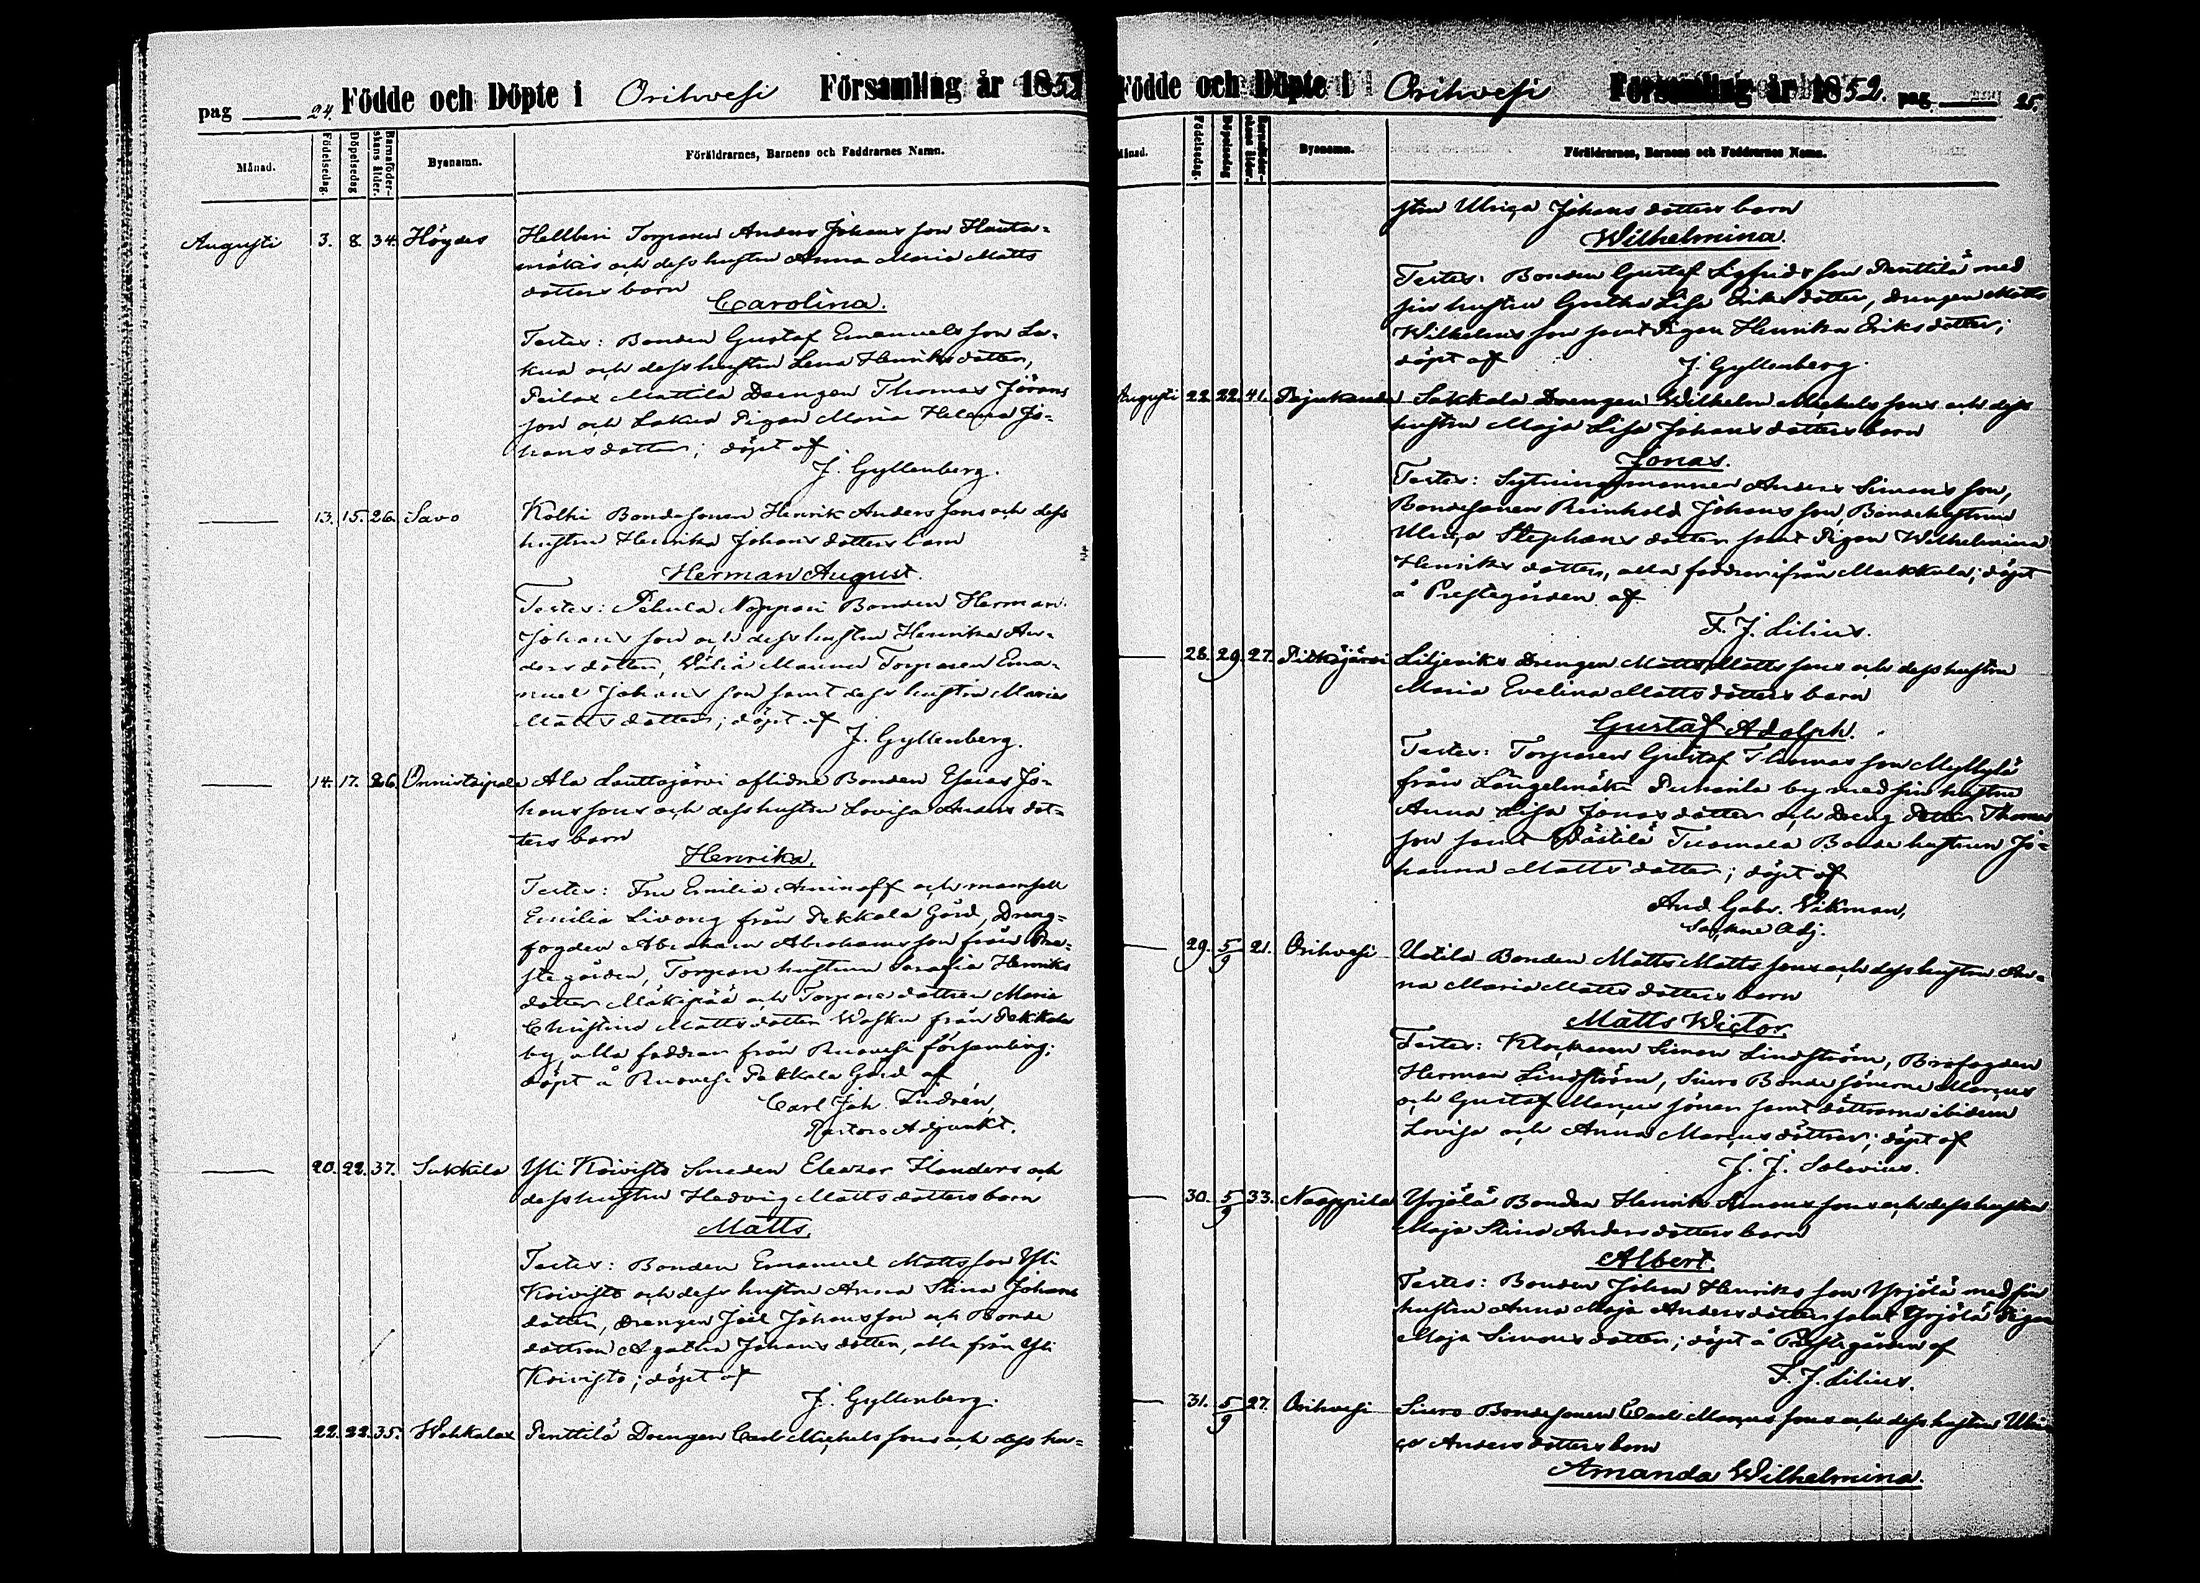 pag 24. Födde och Döpte i Orihvesi Församling år 1852
Månad. Födelsedag. Döpelsedag Barnaföderskans ålder. Bysnamn. Föräldrarnes, Barnens och Faddrarnes Namn.
Augusti 3. 8. 34. Höydes Hellberi Torparen Anders Johans son Hauta-
mäkis och dess hustru Anna Maria Matts
dotters barn
Carolina.
Testes: Bonden Gustaf Emanuels son La-
kua och dess hustru Lena Henriks dotter,
Peilax Mattila Drengen Thomas Jörans
son och Lakua Pigan Maria Helena Jo-
hans dotter; döpt af
J. Gyllenberg.
13. 15. 26. Savo Kolhi Bondesonen Henrik Anders sons och dess
hustru Henrika Johans dotters barn
Herman August.
Testes: Pehula Noppari Bonden Herman
Johans son och dess hustru Henrika An-
ders dotter, Torparen Ema-
nuel Johans son samt dess hustru Maria
Matts dotter; döpt af
J. Gyllenberg.
14. 17. 26. Onnistaipale Ala Lauttajärvi aflidne Bonden Esaias Jo-
hans sons och dess hustru Lovisa Anders dot-
ters barn
Henrika.
Testes: Fru Emilia Aminoff och mamsell
Emilia från Pekkala Gård, Dreng-
fogden Abraham Abrahams son från Pre-
stegården, Torpare hustrun Serafia Henriks
dotter Mäkipää och Torpare dottren Maria
Christina Matts dotter Wasku från Pekkala
by, alla faddrar från Ruovesi församling;
döpt å Ruovesi Pekkala Gård af
Carl Joh.
Pastors Adjunkt.
20. 22. 37. Sukkila Yli Koivisto Smeden Eleazar Flanders och
dess hustru Hedvig Matts dotters barn
Matts.
Testes: Bonden Emanuel Matts son Yli
Koivisto och dess hustru Anna Stina Johans
dotter, Drengen Joel Johans son och Bonde
dottren Agatha Johans dotter, alla från Yli
Koivisto; döpt af
J. Gyllenberg.
22. 22. 35. Wehkalax Penttilä Drengen Carl Michels sons och dess hu-
Födde och Döpte i Orihvesi Församling år 1852. pag 25.
Månad. Födelsedag. Döpelsedag Barnaföderskans ålder. Bysnamn. Föräldrarnes, Barnens och Faddrarnes Namn.
stru Ulrica Johans dotters barn
Wilhelmina.
Testes: Bonden Gustaf Sigfrids son Penttilä med
sin hustru Gretha Lisa Eriks dotter, Drengen Matts
Wilhelms son samt Pigan Henrika Eriks dotter;
döpt af
J. Gyllenberg.
Augusti 22. 22. 41. Pajukanda Sakkala Drengen Wilhelm Michels sons och dess
hustru Maja Lisa Johans dotters barn
Jonas.
Testes: Sytningsmannen Anders Simons son,
Bondesonen Reinhold Johans son, Bondehustrun
Ulrica Stephans dotter samt Pigan Wilhelmina
Henriks dotter, alla faddrar ifrån Mackkala; döpt
å Prestegården af
F. J. Lilius.
28. 29. 27. Pitkäjärvi Liljeviks Drengen Matts Matts sons och dess hustru
Maria Evelina Matts dotters barn
Gustaf Adolph.
Testes: Torparen Gustaf Thomas son Myllylä
från Längelmäki Puharila by med sin hustru
Anna Lisa Jonas dotter och Dreng Petter Thomas
son samt Västilä Tuomala Bonde hustrun Jo-
hanna Matts dotter; döpt af
And. Gabr. Wikman,
Sockne Adj.
29. 5/9 21. Orihvesi Uotila Bonden Matts Matts sons och dess hustru An-
na Maria Matts dotters barn
Matts Wictor.
Testes: Klockaren Simon Lindström, Brofogden
Herman Lindström, Siuro Bonde sönerne Marcus
och Gustaf Marcus söner samt döttrarna ibidem
Lovisa och Anna Marcus döttrar; döpt af
J. J. Solovius.
30. 5/9 33. Naappila Yrjölä Bonden Henrik Simons sons och dess hustru
Maja Stina Anders dotters barn
Albert.
Testes: Bonden Johan Henriks son Yrjölä med sin
hustru Anna Maja Anders dotter samt Yrjölä Pigan
Maja Simons dotter; döpt å Prestegården af
F. J. Lilius.
31. 5/9 27. Orihvesi Siuro Bondesonen Carl Marcus sons och dess hustru Ulri-
ca Anders dotters barn
Amanda Wilhelmina.